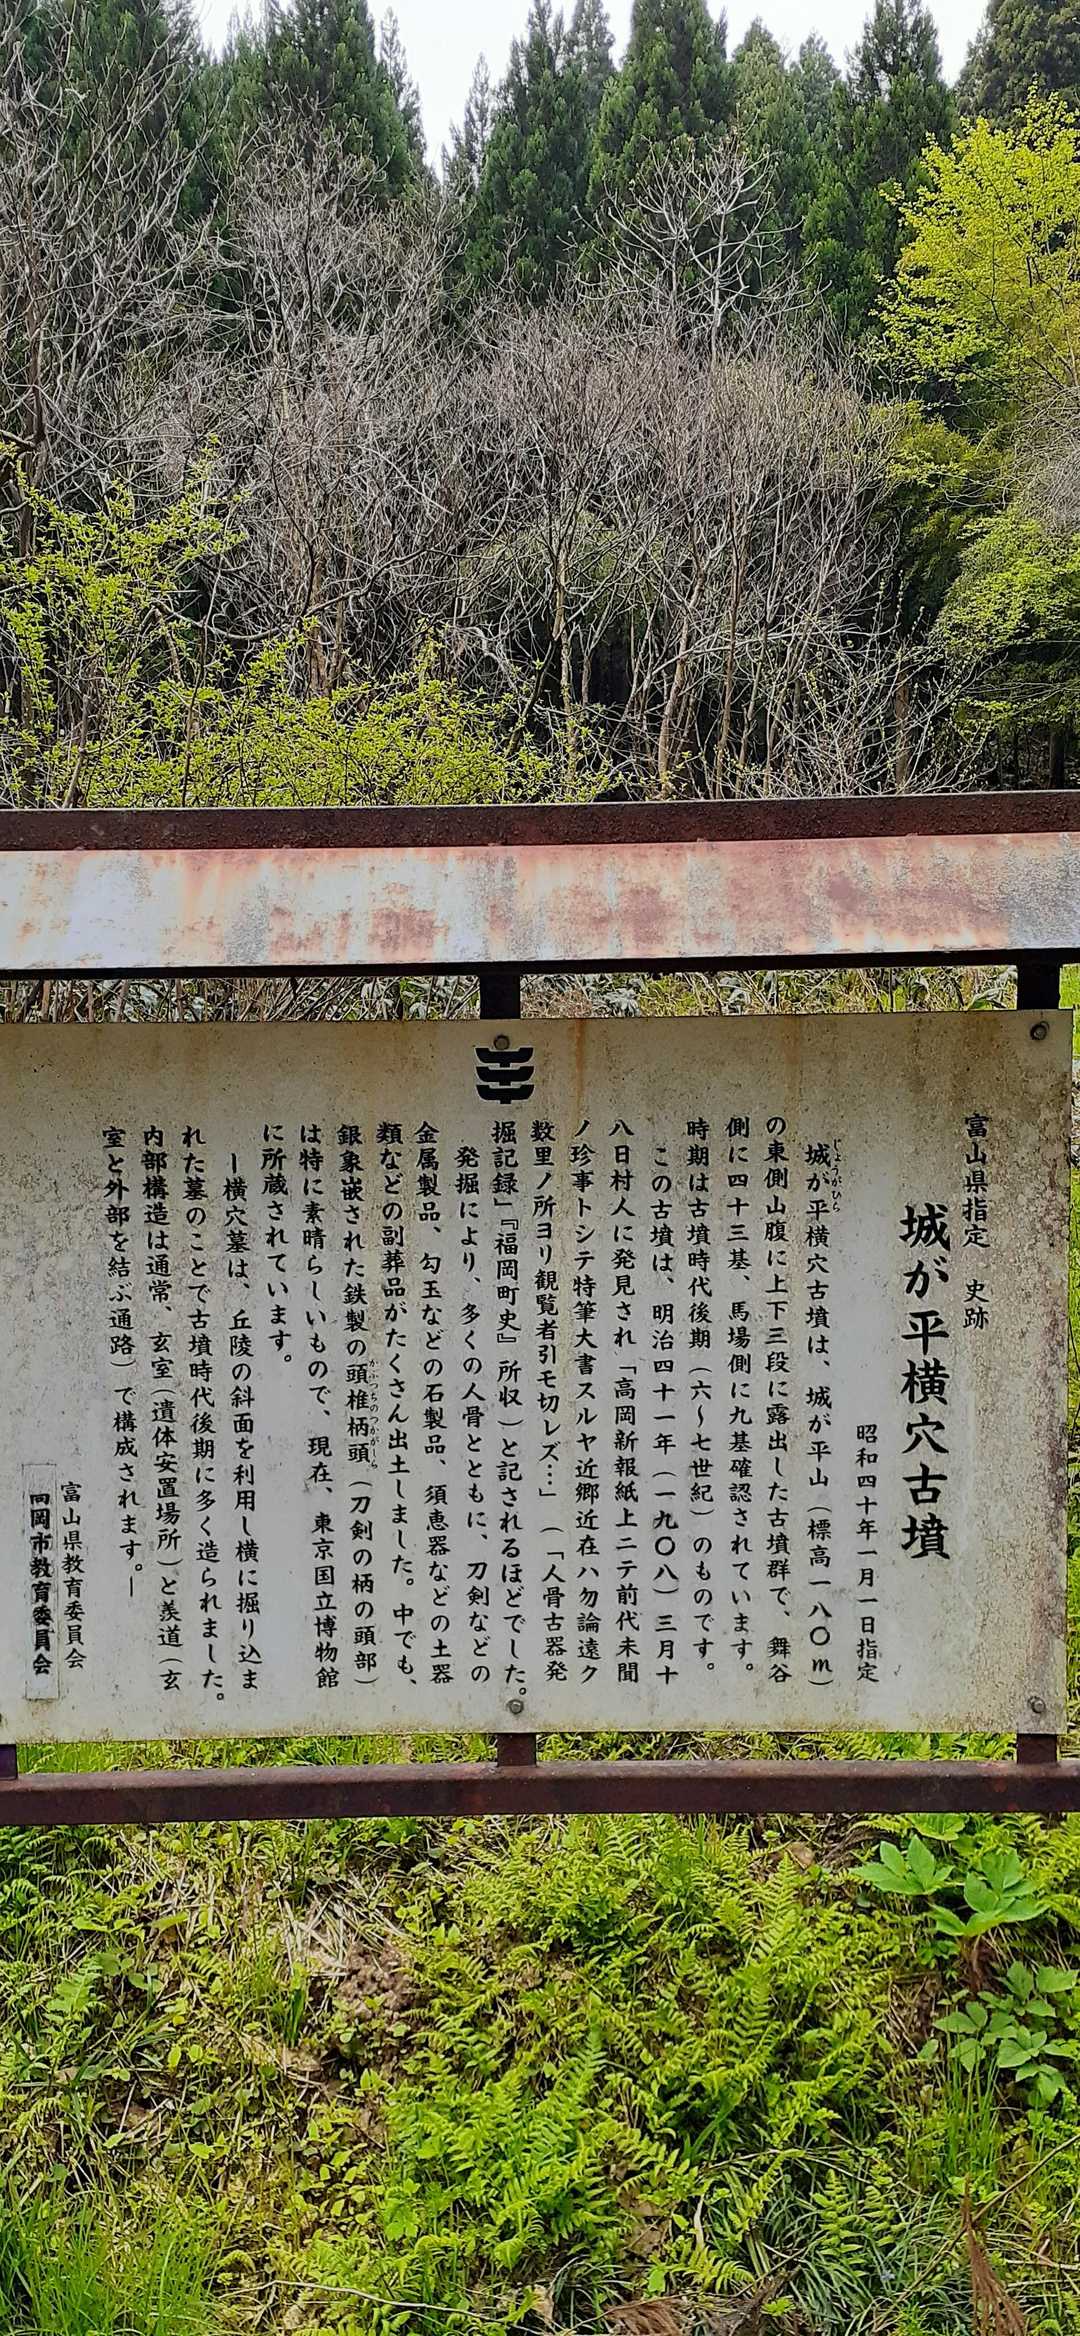 富山県指定 史跡
城が平横穴古墳
昭和四十年一月一日指定
じょうがひら
城が平横穴古墳は、城が平山（標高一八〇m）
の東側山腹に上下三段に露出した古墳群で、舞谷
側に四十三基、馬場側に九基確認されています。
時期は古墳時代後期（六～七世紀）のものです。
この古墳は、明治四十一年（一九〇八）三月十
八日村人に発見され「高岡新報紙上ニテ前代未聞
ノ珍事トシテ特筆大書スルヤ近郷近在ハ勿論遠ク
数里ノ所ヨリ観覧者引モ切レズ…」（「人骨古器発
掘記録」『福岡町史』所収）と記されるほどでした。
発掘により、多くの人骨とともに、刀剣などの
金属製品、勾玉などの石製品、須恵器などの土器
類などの副葬品がたくさん出土しました。中でも、
かぶつちのつかがしら
銀象嵌された鉄製の頭椎柄頭（刀剣の柄の頭部）
は特に素晴らしいもので、現在、東京国立博物館
に所蔵されています。
ー横穴墓は、丘陵の斜面を利用し横に掘り込ま
れた墓のことで古墳時代後期に多く造られました。
内部構造は通常、玄室（遺体安置場所）と羨道（玄
室と外部を結ぶ通路）で構成されます。ー
富山県教育委員会
高岡市教育委員会